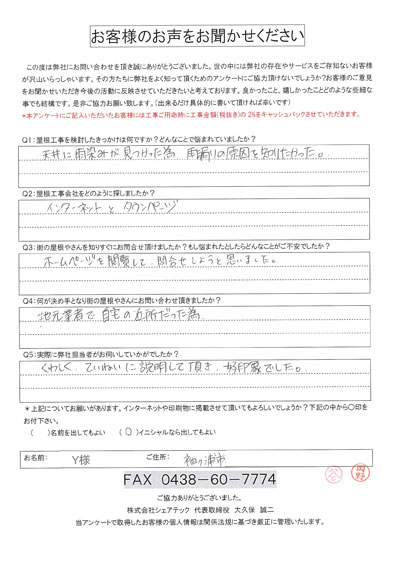 お客様のお声をお聞かせください
この度は弊社にお問い合わせを頂き誠にありがとうございました。世の中には弊社の存在やサービスをご存知ないお客様
が沢山いらっしゃいます。その方たちに弊社をよく知って頂くためのアンケートにご協力頂けないでしょうか?お客様のご意見
をお聞かせいただき今後の活動に反映させていただきたいと考えております。良かったこと、嬉しかったことどのような些細な
事でも結構です。是非ご協力お願い致します。(出来るだけ具体的に書いて頂ければ幸いです)
*本アンケートにご記入いただいたお客様には工事ご用命時に工事金額(税抜き)の2%をキャッシュバックさせていただきます。
Q1:屋根工事を検討したきっかけは何ですか?どんなことで悩まれていましたか?
天井に雨染みが見つかった為 雨漏りの原因を知りたかった。
Q2:屋根工事会社をどのように探しましたか?
インターネットとタウンページ
Q3:街の屋根やさんを知りすぐにお問合せ頂けましたか?もし悩まれたとしたらどんなことがご不安でしたか?
ホームページを閲覧して、問合せしようと思いました。
Q4:何が決め手となり街の屋根やさんにお問い合わせ頂きましたか?
地元業者で自宅の近所だった為
Q5:実際に弊社担当者がお伺いしていかがでしたか?
くわしく、ていねいに説明して頂き、好印象でした。
*上記についてお願いがあります。インターネットや印刷物に掲載させて頂いてもよろしいでしょうか?下記の中から〇印を
お付下さい。
( )名前を出してもよい (〇)イニシャルなら出してもよい
お名前: Y様 ご住所: 袖ヶ浦市
FAX 0438-60-7774
ご協力ありがとうございました。
株式会社シェアテック 代表取締役 大久保 誠二
当アンケートで取得したお客様の個人情報は関係法規に基づき厳正に管理いたします。